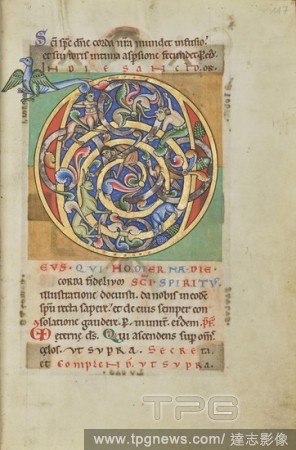 157
Sc̄i sp̄c dn̄e corda nr̄a mundet infusio.
et sui roris intima aspsione fecundet. P. ed.
IN DIE SANCTO. OR.
EUS. QUI HODIERNA DIE
corda fidelium SC̄I SPIRITŪ
illustratione docuisti. da nobis in eodē
spū recta sapere. et de eius semper con
solatione gaudere. P.
eterne ds̄. Qui ascendens sup om̄s
celos. UT SUPRA. SECRETA.
et COMPLEND. UT SUPRA.
TPG
www.tpgnews.com / 達志影像